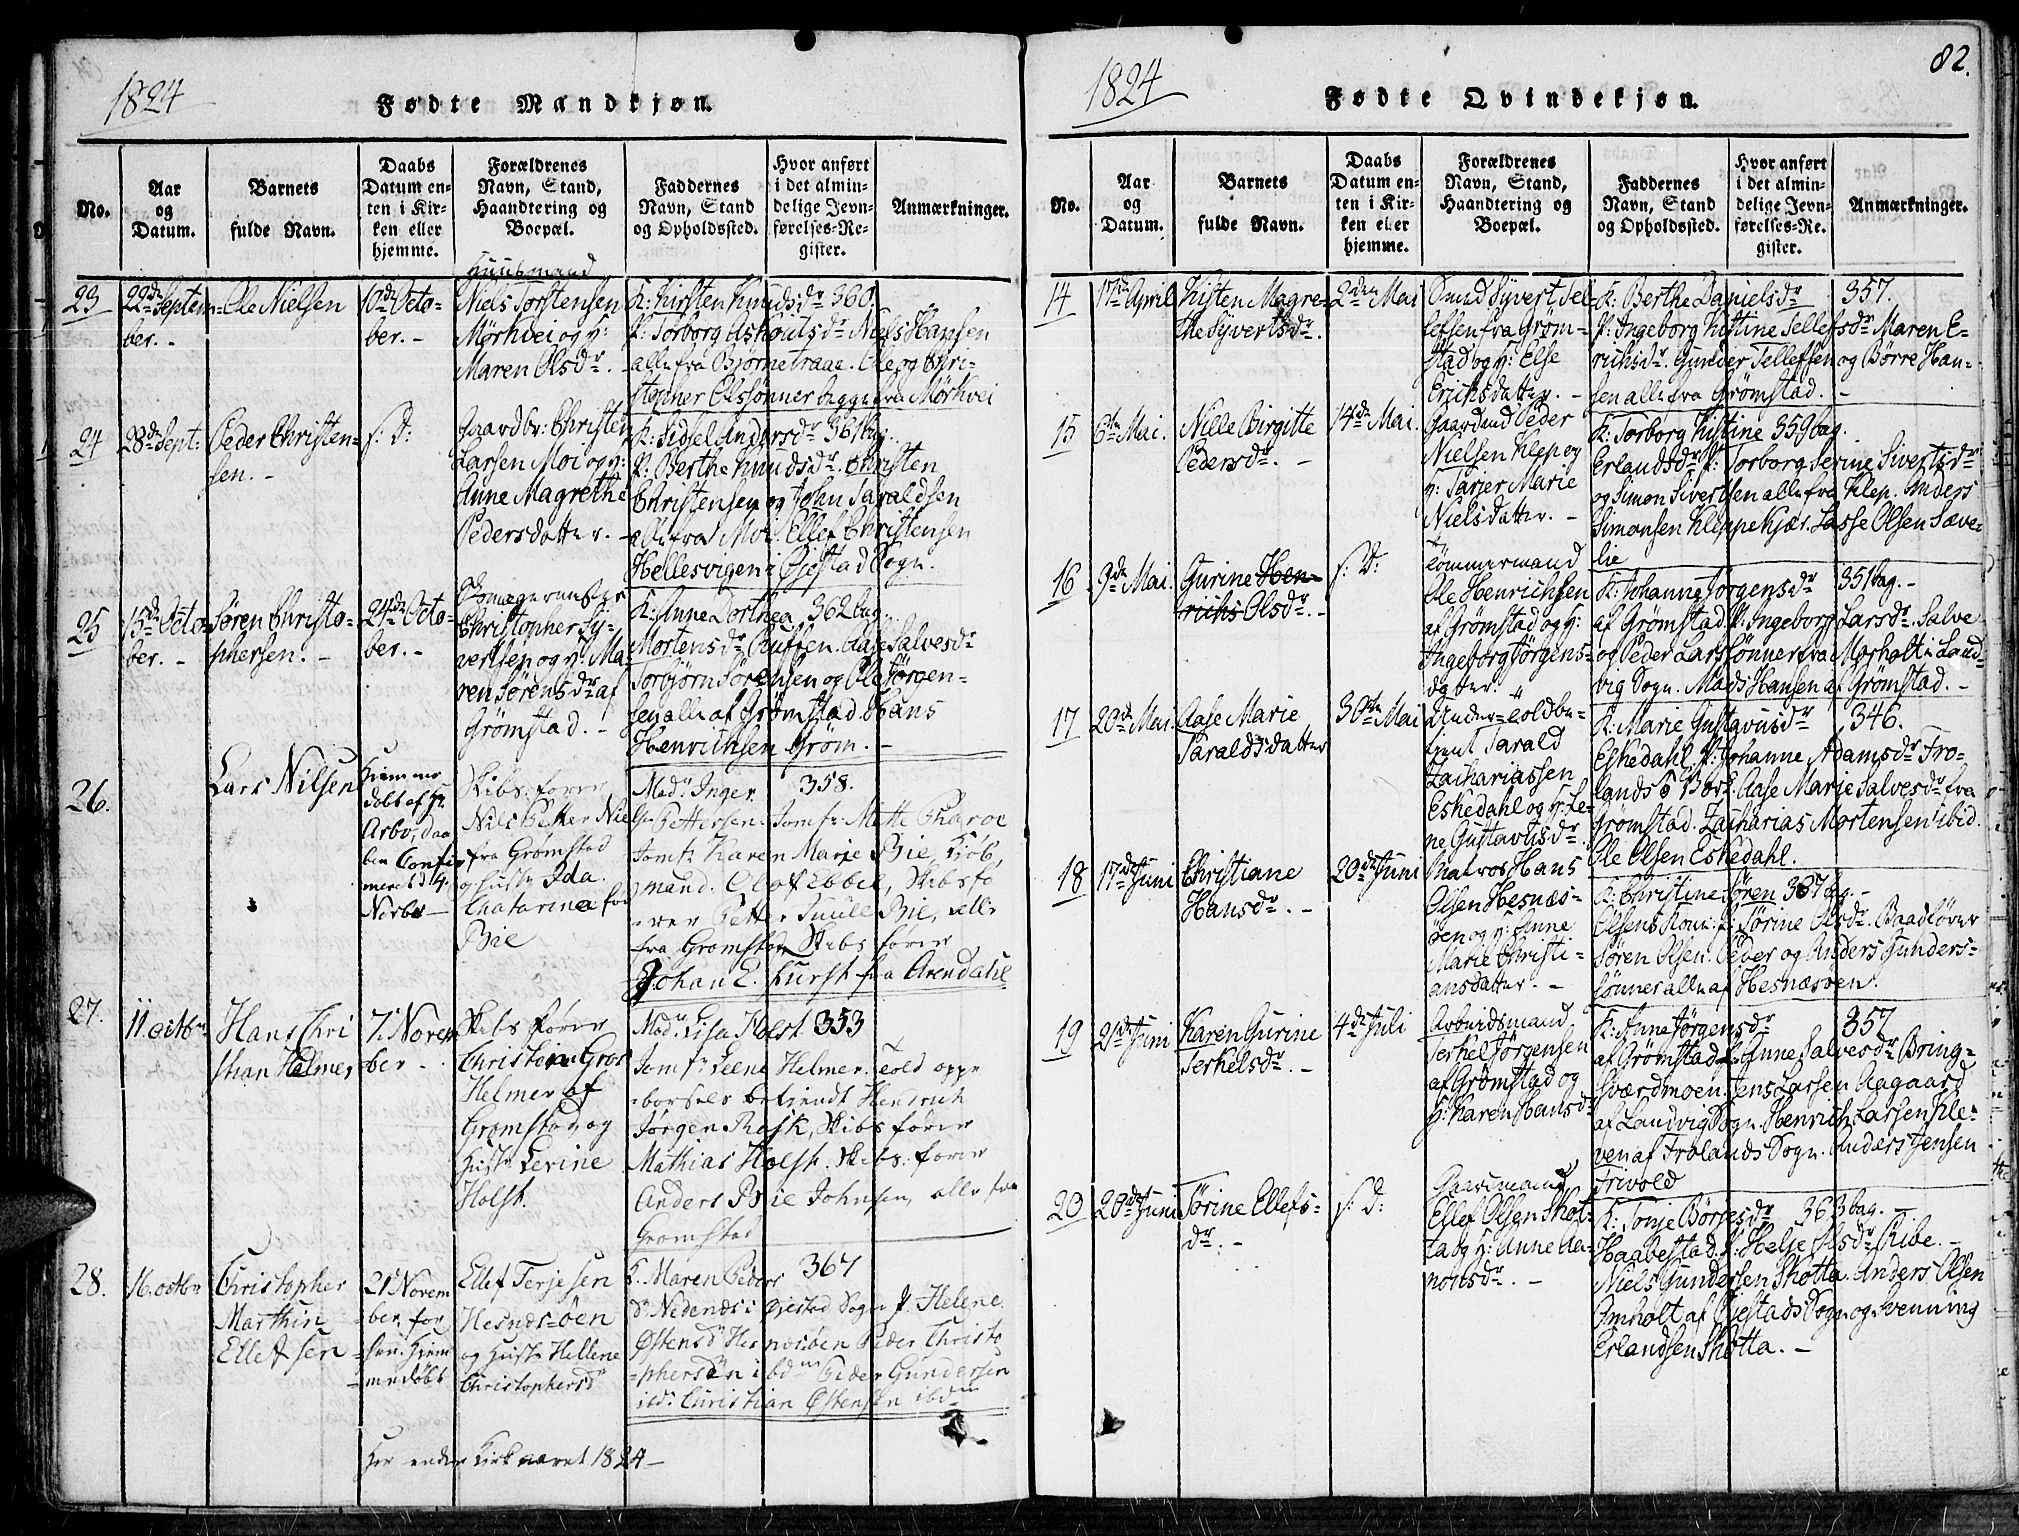 1824
Fødte Mandkjøn.
No.
Aar
og
Datum.
Barnets
fulde Navn.
Daabs
Datum en-
ten i Kir-
ken eller
hjemme.
Forældrenes
Navn, Stand,
Haandtering og
Boepæl.
Faddernes
Navn, Stand
og Opholdssted.
Hvor anført
i det almin-
delige Jevn-
førelses-Re-
gister.
Anmærkninger.
23
22de Septem-
ber. -
Ole Nielsen
10de Octo-
ber. -
Huusmand
Niels Torstensen
Mörkvei og H:
Maren Olsdr. -
K: Kirsten Knudsdr 360.
P: Torborg Ashoutsdr Niels Hansen
alle fra Bjørnetraae. Ole og Chri-
stopher Olssönner begge fra Mörkvei
24
28de Sept:
Peder Christen-
sen. -
s: D:
Gaardbr: Christen
Larsen Moi og H:
Anne Magrethe
Pedersdatter. -
K: Sidsel Andersdr 361 bag.
P: Berthe Knudsdr. Christen
Christensen og Johan Taraldsen
alle fra Moi. Ellef Christensen
Hellesvigen i Öjestad Sogn.
25
15de Octo-
ber. -
Sören Christo-
phersen. -
24de Octo-
ber. -
Christopher Sy-
vertsen og H: Ma-
ren Sörensdr af
Grömstad. -
K: Anne Dorthea 362 bag.
Mortensdr Ruften. Aase Salvesdr
Torbjörn Sörensen og Ole Jörgen-
sen alle af Grömstad. Hans
Henrichsen Gröm. -
26.
Lars Nilsen
Hjemme
døbt af Hr
Arbo, daa
ben Confir
meret d 14
Novbr -
Skibsfører
Nils Petter Nie
fra Grömstad
og Hustr Ida
Chatarina fød
Bie
Mad: Inger 358.
G: Pettersen. Jomfr: Mette Pharoe
Jomfr Karen Marie Bie, Kjöb,
mand. Olaf Ebbel, Skibsfö
rer Petter Juule Bie, alle
fra Gromstad, Skibs fører
Johan E. Kursh fra Arendahl
27.
11. octbr
Hans Chri
stian Helmer
7. Novem
ber -
Skibsfører
Christian Gros
Helmer af
Gromstad og
Hustr Levine
Holst.
Mad: Lisa Holst 353
Jomfr Leene Helmer. told oppe
børsels betjendt Hendrich
Jørgen Rask, Skibsfører
Mathias Holst. Skibs: fører
Anders Bie Johnsen, alle fra
Gromstad
28.
16. octbr
Christopher
Marthin
Ellefsen
21 Novem
ber, for
hen Hjem
medøbt
Ellef Terjesen
Hesnæsöen
og Hustr Hellene
Christophersd
K. Maren Peders 367
dr Nedenæs i Øjestad Sogn P. Helene
Østensd Hesnæsöen Peder Christo
phersen ibdm Peder Gundersen
ibd: Christian Østensen ibdm
Her ender Kirkeaaret 1824 -
1824
82.
Fødte Qvindekjøn.
No.
Aar
og
Datum.
Barnets
fulde Navn.
Daabs
Datum en-
ten i Kir-
ken eller
hjemme.
Forældrenes
Navn, Stand,
Haandtering og
Boepæl.
Faddernes
Navn, Stand
og Opholdssted.
Hvor anført
i det almin-
delige Jevn-
førelses-Re-
gister.
Anmærkninger.
14
17de April
Kisten Magre-
the Syvertsdr.
2den Mai
Smed Syvert Tel-
lefsen fra Gröm-
stad og H: Else
Erichsdatter. -
K: Berthe Danielsdr 357.
P: Ingeborg Kistine Tellefsdr Maren E-
richsdr. Gunder Tellefsen og Börre Han-
sen alle fra Grömstad. -
15
6te Mai.
Nille Birgitte
Pedersdr. -
14de Mai.
Gaardmd Peder
Nielsen Klep og
H: Tarjer Marie
Nielsdatter. -
K: Torborg Kistine 359 bag.
Erlandsdr P: Torborg Serine Sivertsdr
og Simon Sivertsen alle fra Klep. Anders
Simonsen Kleppekjær. Lasse Olsen Sæve-
lie
16
9de Mai.
Gurine Hen-
richs Olsdr. -
s: D:
Tömmermand
Ole Henrichsen
af Grömstad og H:
Ingeborg Jörgens-
datter.
K: Johanne Jörgensdr 351 bag. -
af Grömstad P: Ingeborg Larsdr. Salve
og Peder Larssönner fra Morholt i Land-
vig Sogn. Mads Hansen af Grömstad. -
17
20de Mai.
Aase Marie
Taraldsdatter
30te Mai
Under-Toldbe-
tjent Tarald
Zachariassen
Eskedahl og H: Le-
ne Gustavusdr.
K: Marie Gustavusdr 346.
Eskedahl P: Johanne Adamsdr Fro-
lands Værk. Aase Marie Salvesdr fra
Grömstad. Zacharias Mortensen ibid.
Ole Olsen Eskedahl.
18
17de Juni
Christiane
Hansdr. -
20de Juni
Matros Hans
Olsen Hesnæs-
öen og H: Anne
Marie Christi-
ansdatter. -
K: Christine Sören 367 bag. -
Olsens Kone. P: Sörine Olsdr. Baadförer
Sören Olsen. Peder og Anders Gunders-
sönner alle af Hesnæsöen.
19
21de Juni
Karen Gurine
Terkelsdr. -
4de Juli
Arbeidsmand
Terkel Jörgensen
af Grömstad og
H: Karen Hansdr
K: Anne Jörgensdr 357
af Grömstad P: Anne Salvesdr Bring-
sværdmoen. Jens Larsen Aagaard
af Landvig Sogn. Henrich Larsen Kle-
ven af Frolands Sogn. Anders Jensen
Frivold
20
20de Juni
Törine Ellefs-
dr. -
s: D:
Gaardmand
Ellef Olsen Skot-
ta og H: Anne Aa-
nonsdr. -
K: Tonje Börjesdr 363 bag. -
Haabestad. P: Helje Olsdr Ribe. -
Niels Gundersen Skotta. Anders Olsen
Omholt af Öjestads Sogn og Svenning
Erlandsen Skotta. -